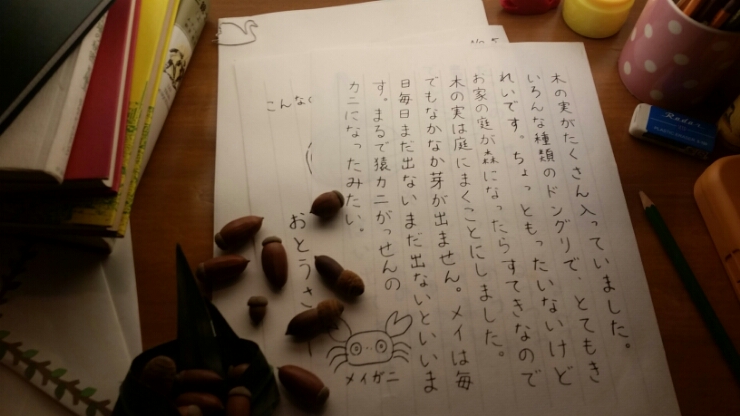 木の実がたくさん入っていました。
いろんな種類のドングリで、とてもき
れいです。ちょっともったいないけど
お家の庭が森になったらすてきなので
木の実は庭にまくことにしました。
でもなかなか芽が出ません。メイは毎
日毎日まだ出ないまだ出ないといいま
す。まるで猿カニがっせんの
カニになったみたい。
メイガニ
こんな
おとうさ